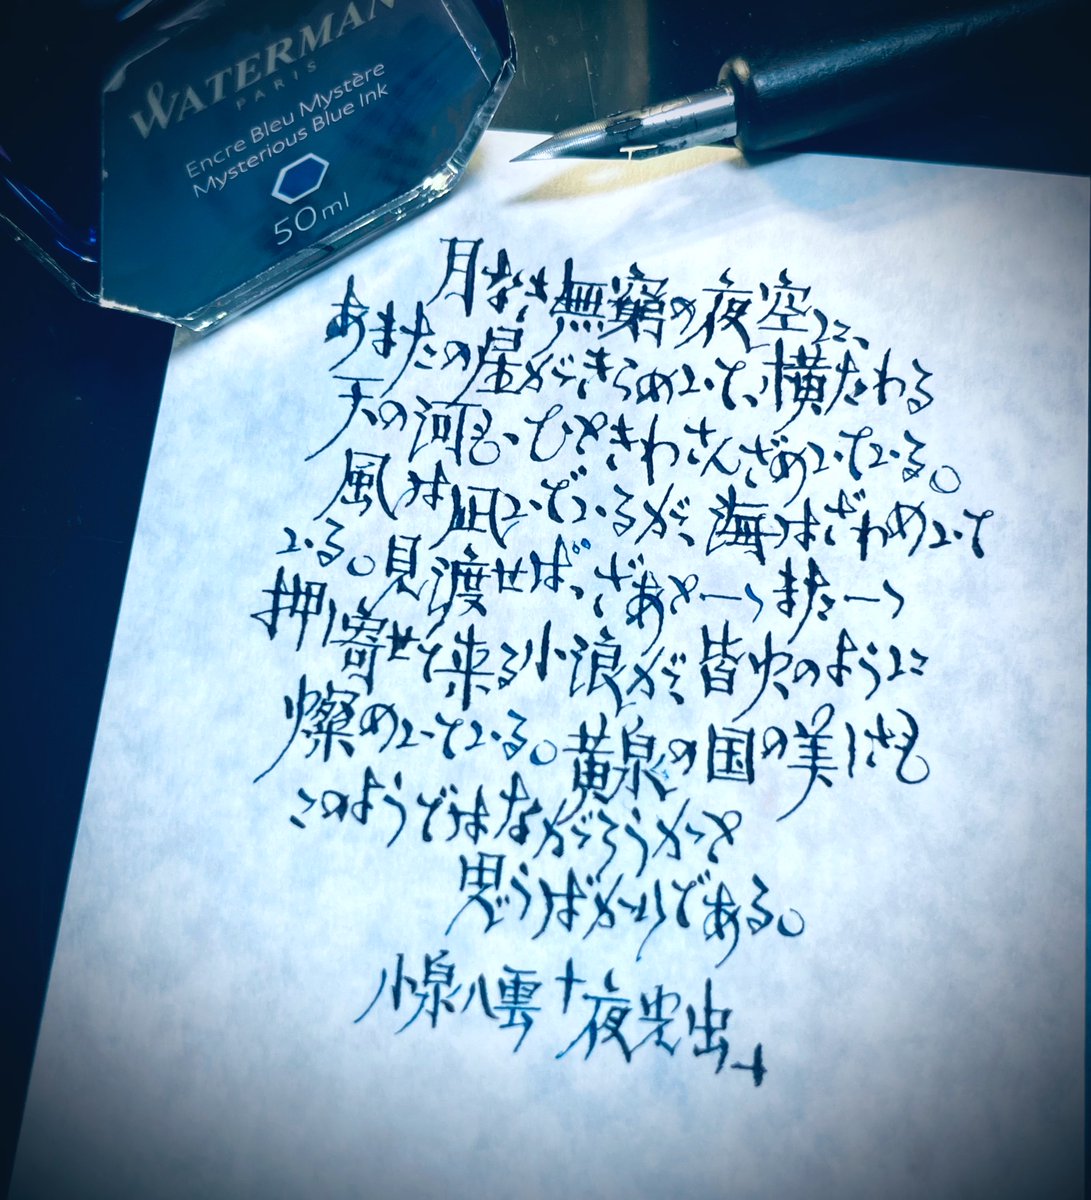 WATERMAN
PARIS
Encre Bleu Mystère
Mysterious Blue Ink
50ml
月なき無窮の夜空に、
あまたの星がきらめいて、横たわる
天の河も、ひときわさんざめいている。
風は凪いでいるが、海はざわめいて
いる。見渡せば、ざあと一つまた一つ
押し寄せて来る小浪が、皆火のように
燦めいている。黄泉の国の美しさも
このようではなかろうかと
思うばかりである。
小泉八雲十夜光虫十